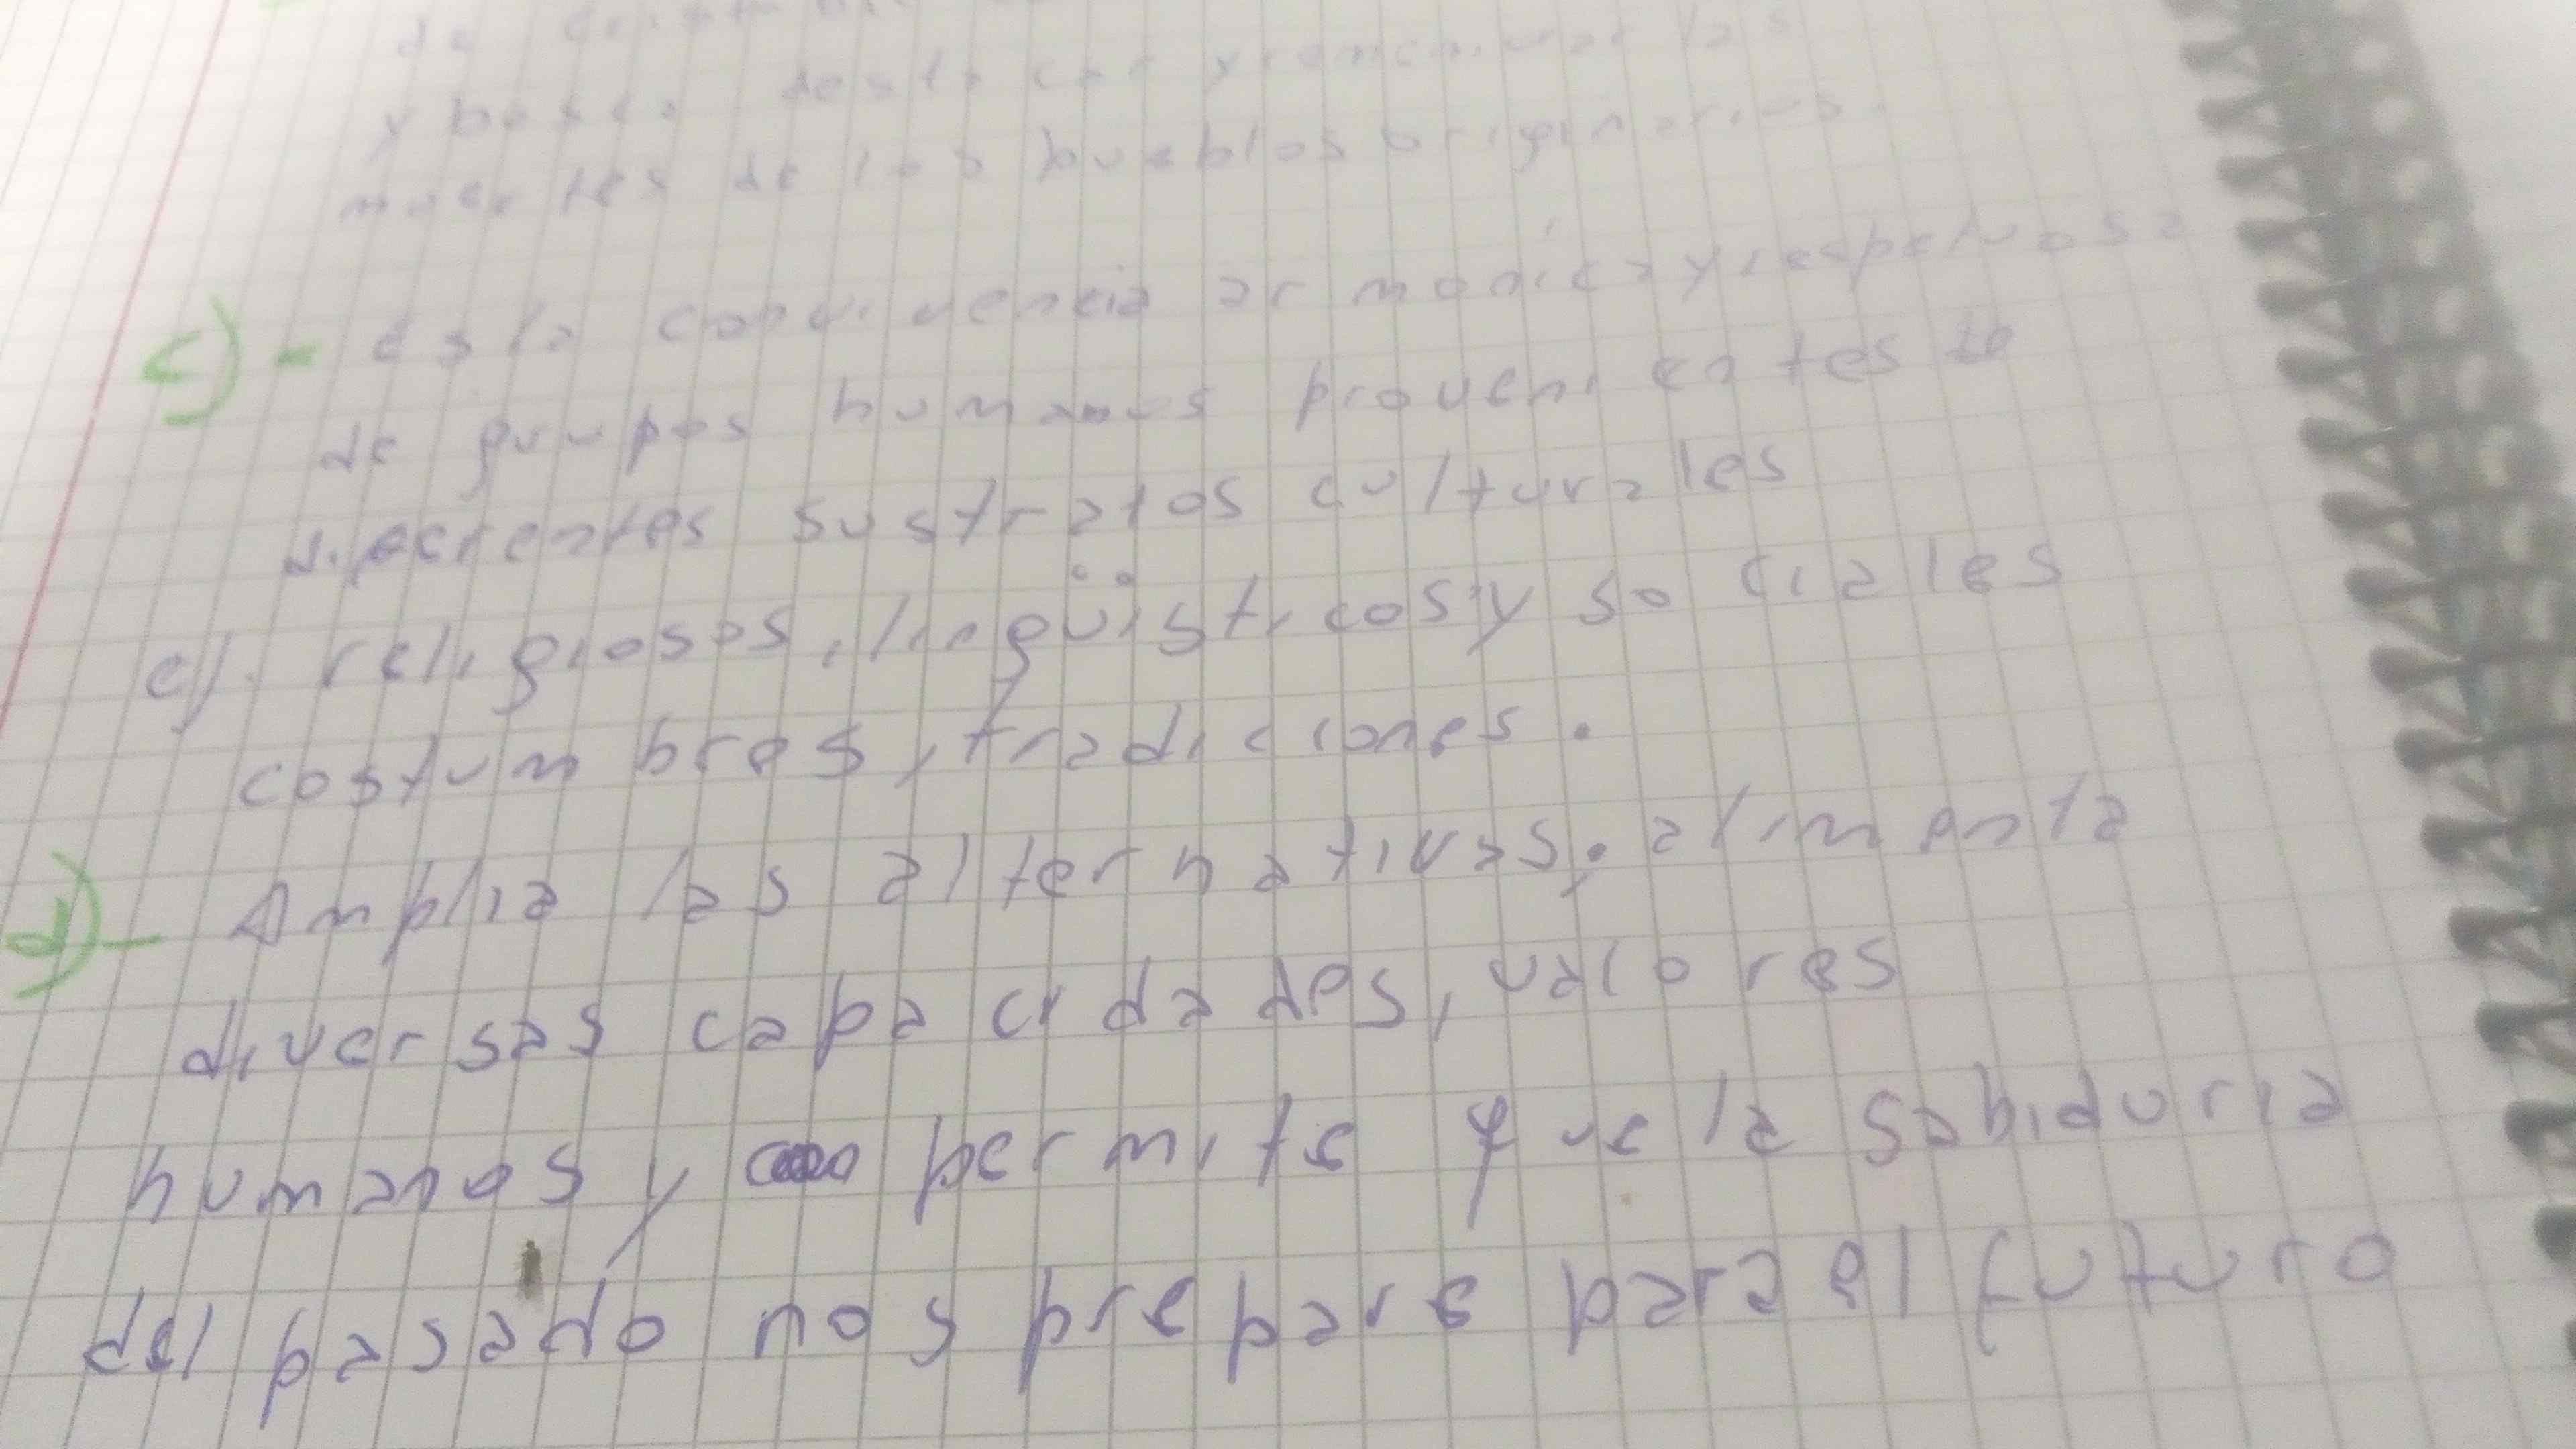 de
y busca destacar y reencivar las
muertes de los pueblos originarios.
c) - es la convivencia armonica y respetuosa
de gruupos humanos provenientes te
diferentes sustratos culturales
e). religiosos, lingüisticos y sociales
costumbres, tradiciones.
d) - Amplia las alternativas; alimenta
diversas capacidades, valores
humanos y permite que la sabiduria
del pasado nos prepare para el futuro